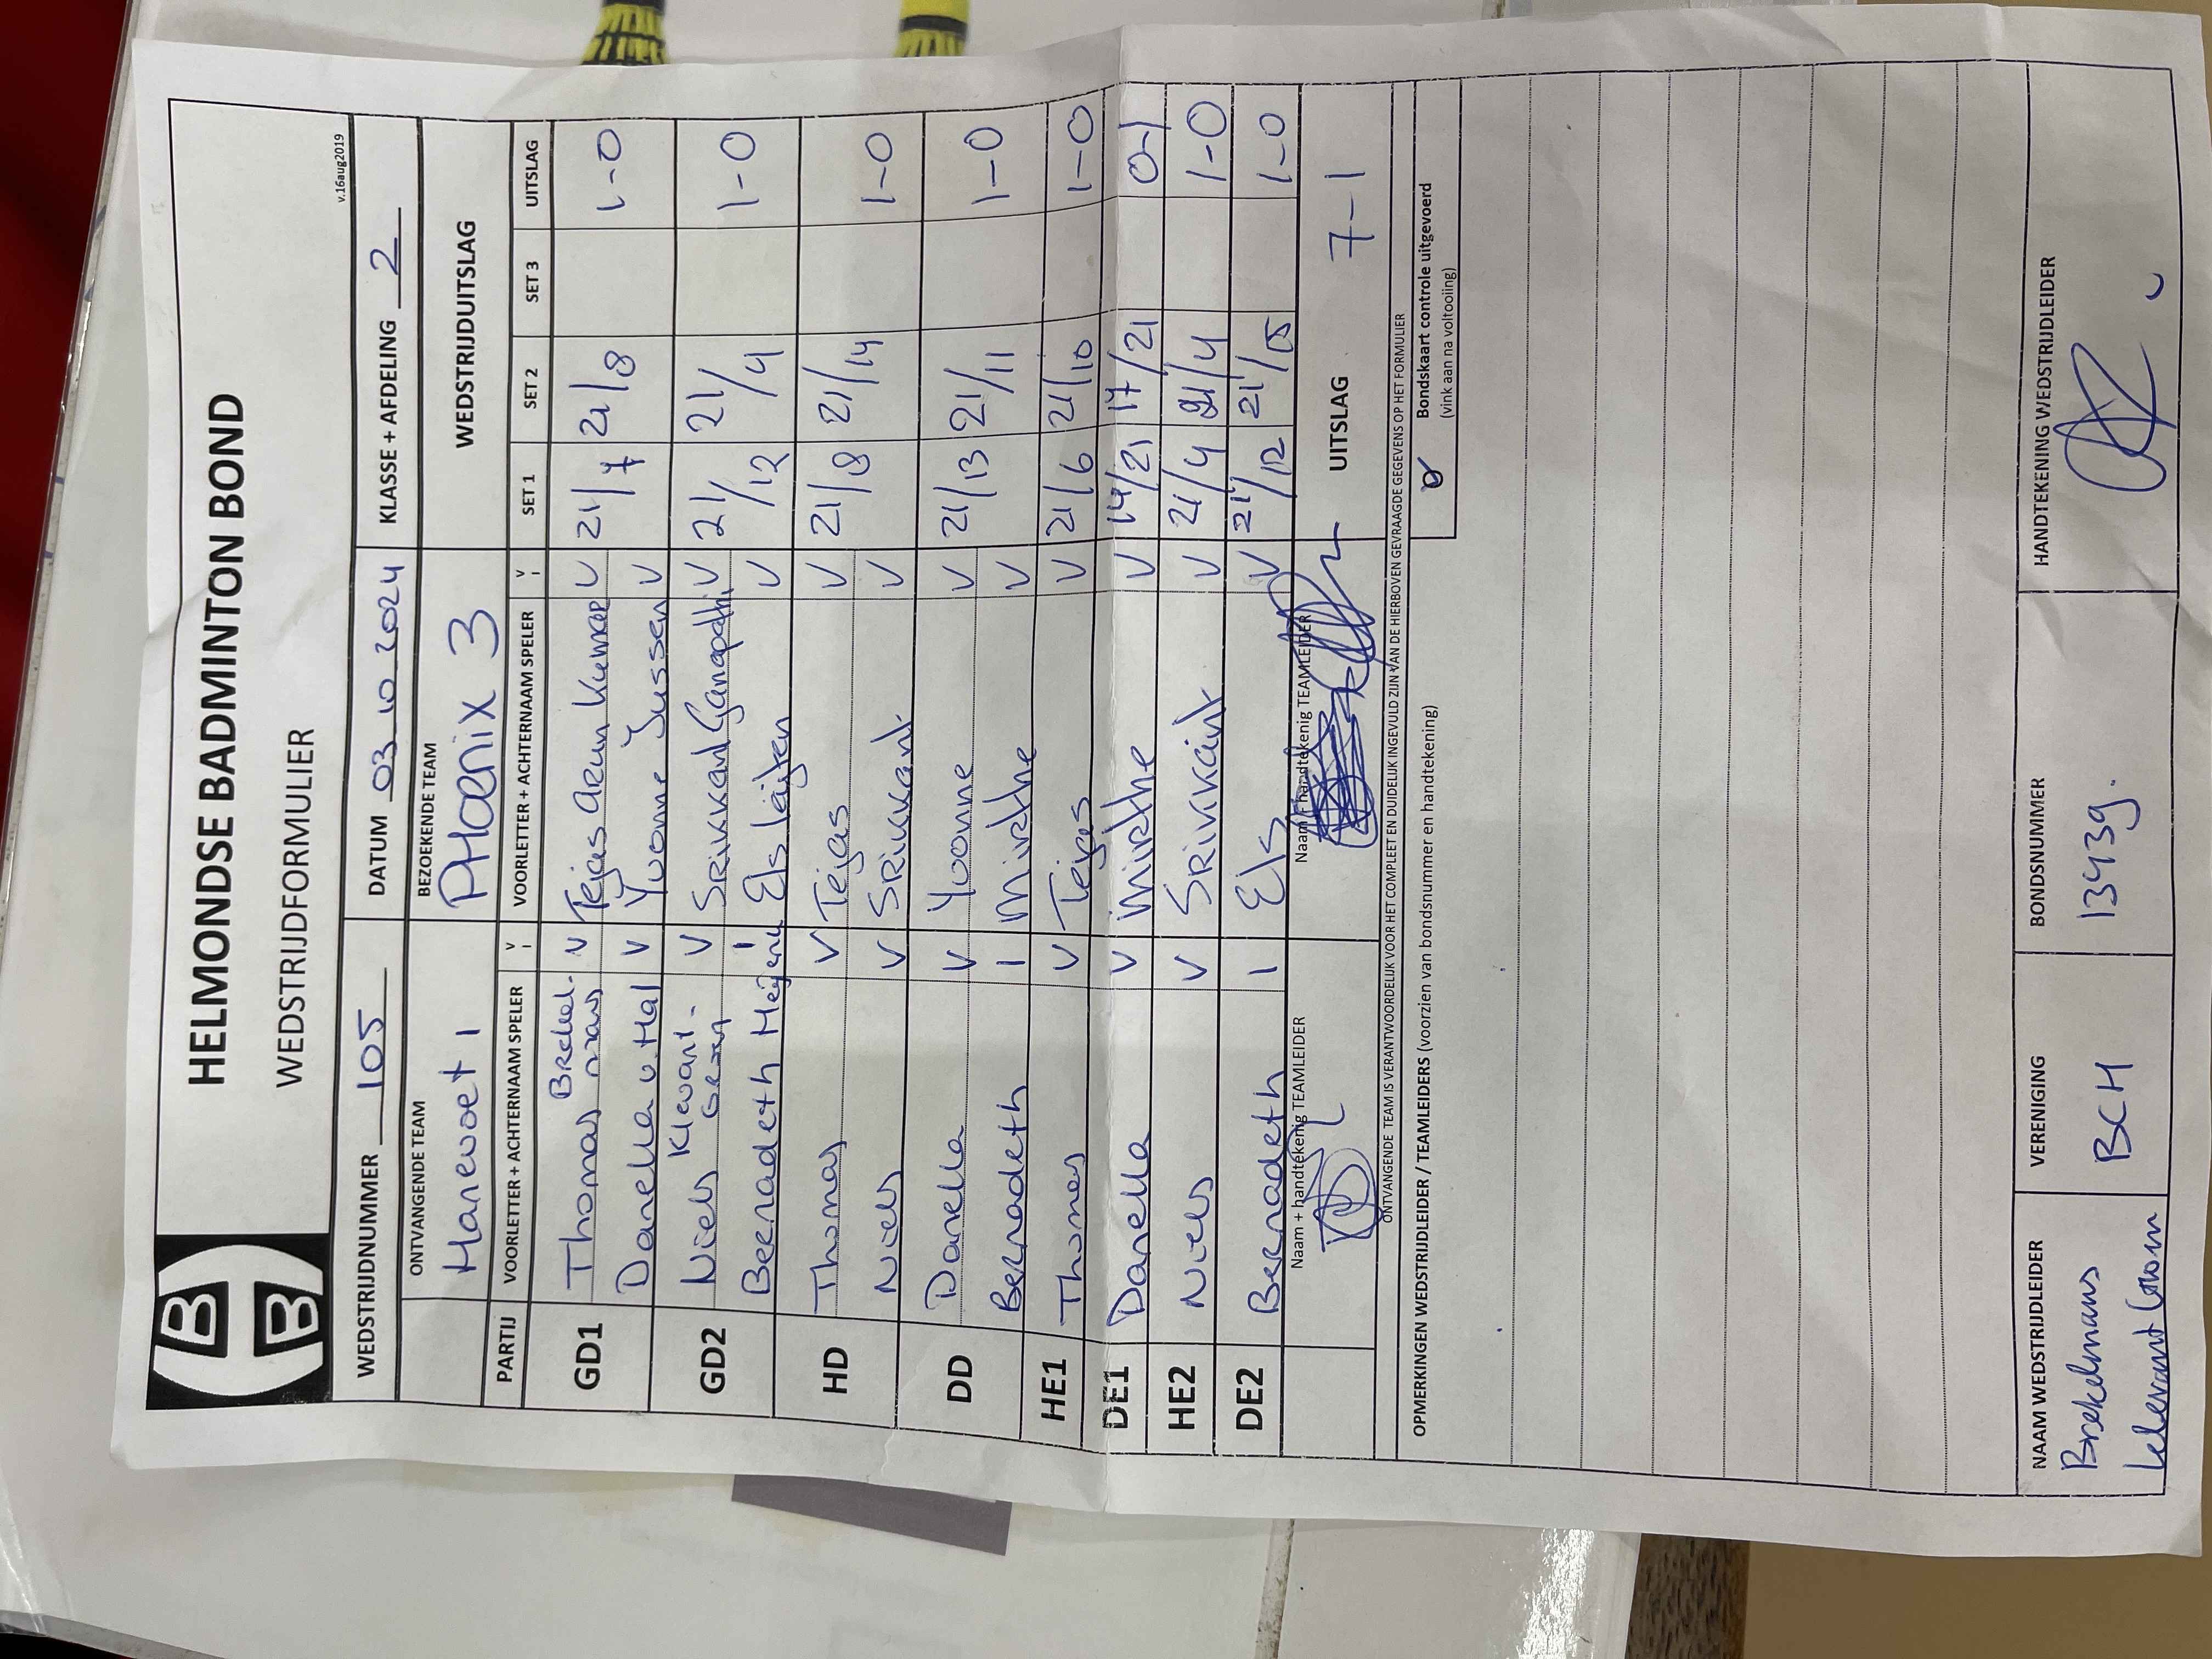 HELMONDSE BADMINTON BOND
WEDSTRIJDFORMULIER
v.16aug2019
WEDSTRIJDNUMMER 105 DATUM 03 10 2024 KLASSE + AFDELING 2
ONTVANGENDE TEAM BEZOEKENDE TEAM WEDSTRIJDUITSLAG
Hanevoet 1 PHoenix 3
PARTIJ VOORLETTER + ACHTERNAAM SPELER V I VOORLETTER + ACHTERNAAM SPELER V I SET 1 SET 2 SET 3 UITSLAG
GD1 Thomas Brekel-mans V Tejas Arun Kumar V 21/7 21/8 1-0
Danella v Hal V Yvonne Jussen V
GD2 Niels Klevant-Groen V Srikkant Ganapathi V 21/12 21/4 1-0
Bernadeth I Els V
HD Thomas V Tejas V 21/8 21/14 1-0
Niels V Srikkant V
DD Danella V Yvonne V 21/13 21/11 1-0
Bernadeth I Mirthe V
HE1 Thomas V Tejas V 21/6 21/10 1-0
DE1 Danella V Mirthe V 14/21 17/21 0-1
HE2 Niels V Srikkant V 21/4 21/4 1-0
DE2 Bernadeth I Els V 21/12 21/15 1-0
Naam + handtekenig TEAMLEIDER Naam + handtekenig TEAMLEIDER UITSLAG 7-1
ONTVANGENDE TEAM IS VERANTWOORDELIJK VOOR HET COMPLEET EN DUIDELIJK INGEVULD ZIJN VAN DE HIERBOVEN GEVRAAGDE GEGEVENS OP HET FORMULIER
Bondskaart controle uitgevoerd
(vink aan na voltooiing)
OPMERKINGEN WEDSTRIJDLEIDER / TEAMLEIDERS (voorzien van bondsnummer en handtekening)
NAAM WEDSTRIJDLEIDER VERENIGING BONDSNUMMER HANDTEKENING WEDSTRIJDLEIDER
Brekelmans BCH 13439.
Klevant Groen